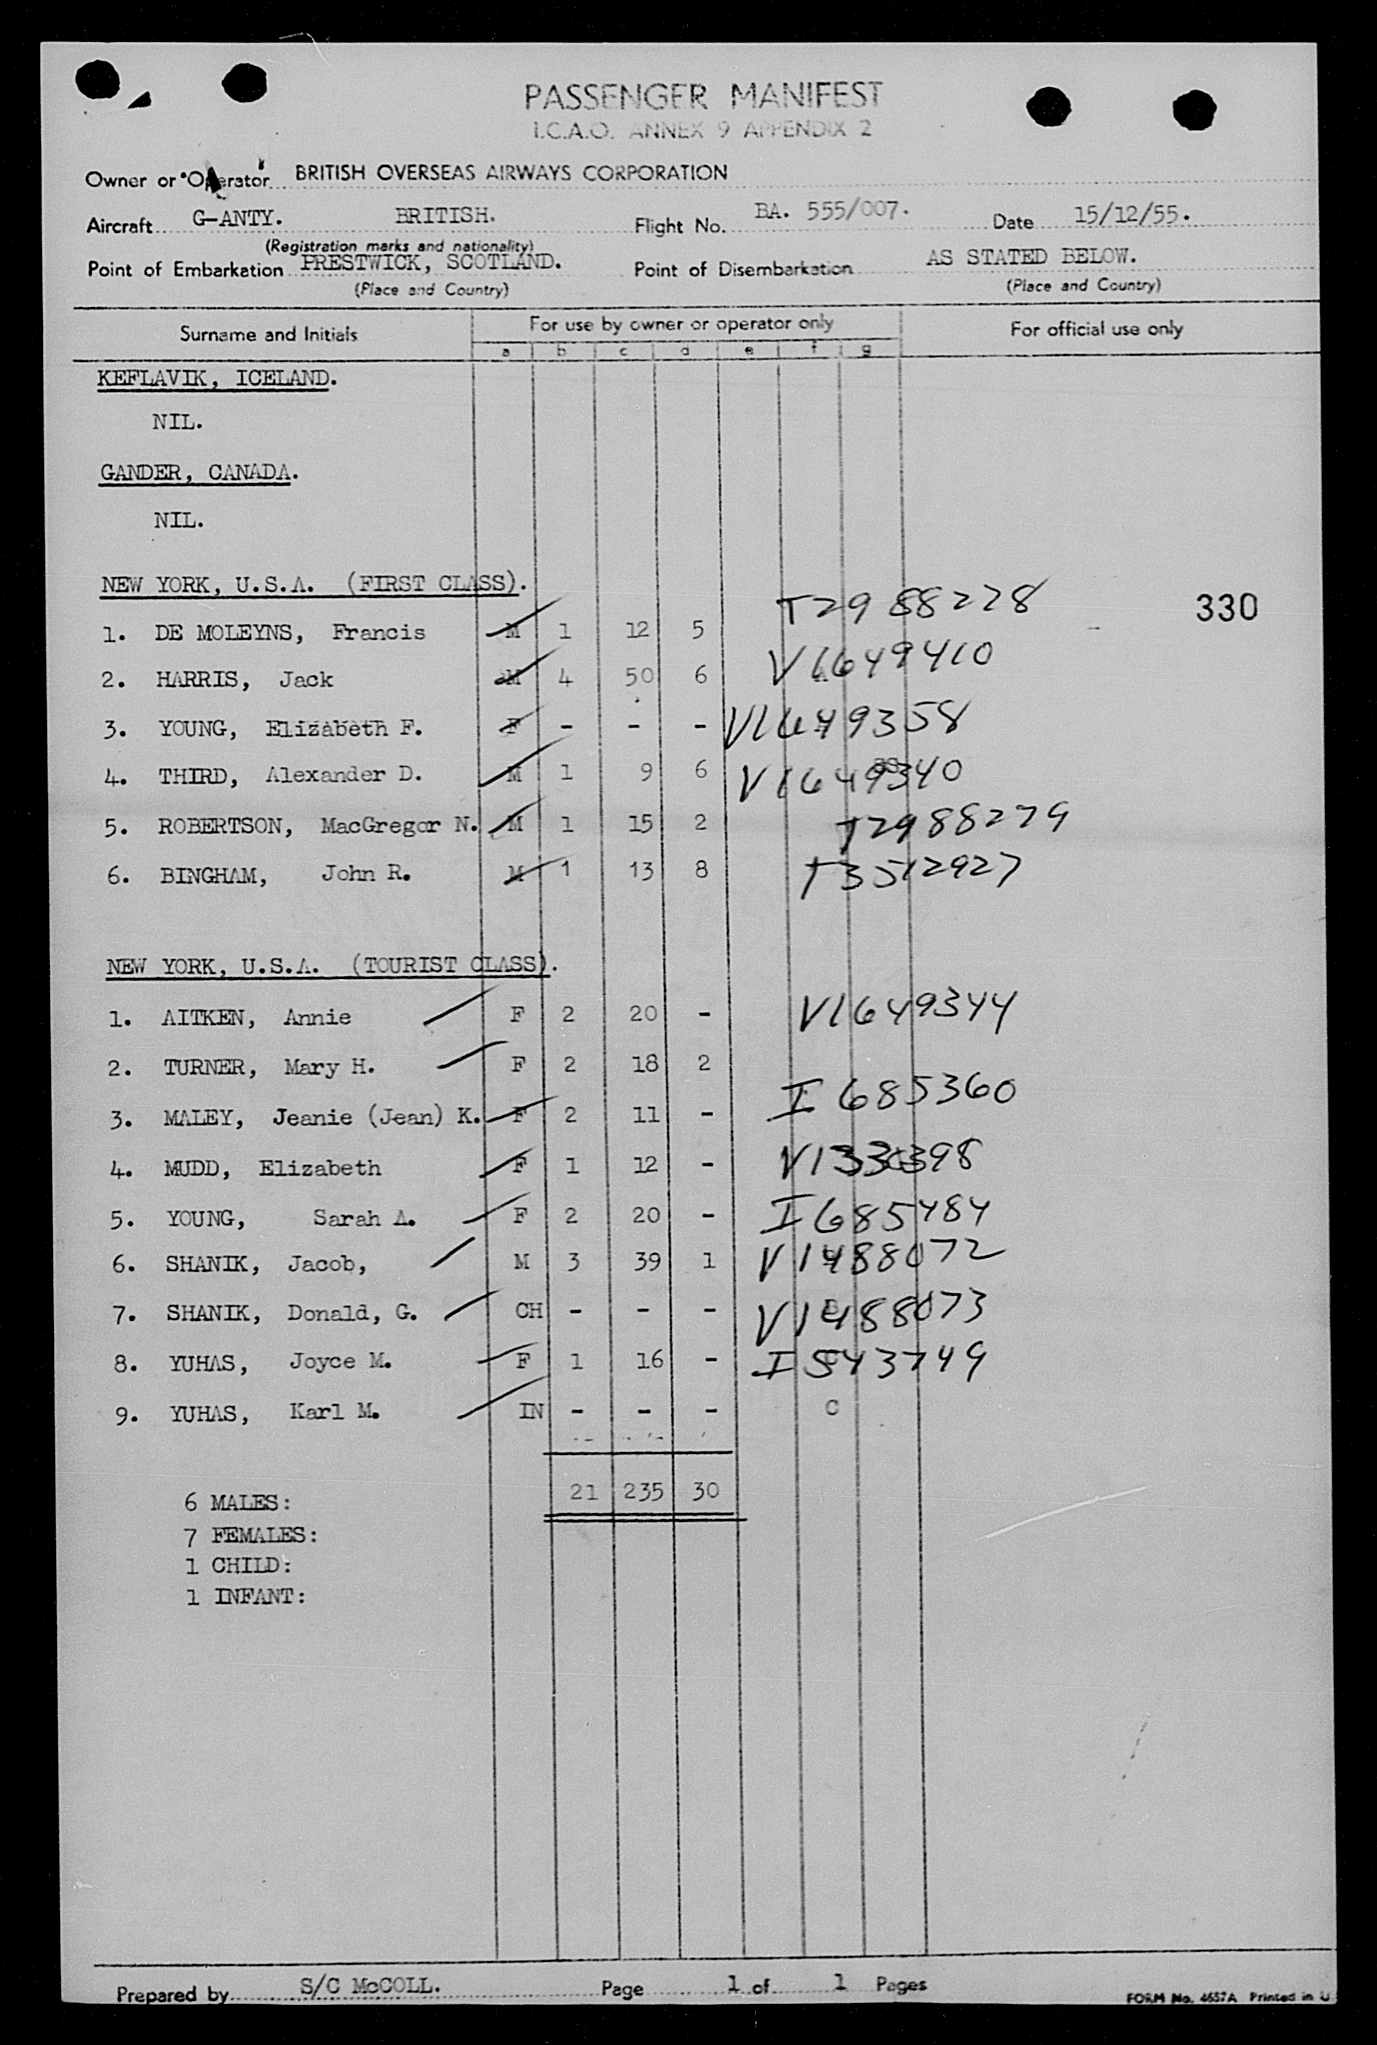 PASSENGER MANIFEST
I.C.A.O. ANNEX 9 APPENDIX 2
Owner or Operator BRITISH OVERSEAS AIRWAYS CORPORATION
Aircraft G-ANTY. BRITISH. Flight No. BA. 555/007. Date 15/12/55.
(Registration marks and nationality)
Point of Embarkation PRESTWICK, SCOTLAND. Point of Disembarkation AS STATED BELOW.
(Place and Country) (Place and Country)
Surname and Initials For use by owner or operator only For official use only
a b c d e f g
KEFLAVIK, ICELAND.
NIL.
GANDER, CANADA.
NIL.
NEW YORK, U.S.A. (FIRST CLASS).
330
1. DE MOLEYNS, Francis M 1 12 5 T2988228
2. HARRIS, Jack M 4 50 6 V1649410
3. YOUNG, Elizabeth F. F - - - V1649358
4. THIRD, Alexander D. M 1 9 6 V1649340
5. ROBERTSON, MacGregor N. M 1 15 2 T2988279
6. BINGHAM, John R. M 1 13 8 T3512927
NEW YORK, U.S.A. (TOURIST CLASS).
1. AITKEN, Annie F 2 20 - V1649344
2. TURNER, Mary H. F 2 18 2
3. MALEY, Jeanie (Jean) K. F 2 11 - I 685360
4. MUDD, Elizabeth F 1 12 - V1330398
5. YOUNG, Sarah A. F 2 20 - I685484
6. SHANIK, Jacob, M 3 39 1 V1488072
7. SHANIK, Donald, G. CH - - - V1488073
8. YUHAS, Joyce M. F 1 16 - I543749
9. YUHAS, Karl M. IN - - - C
21 235 30
6 MALES:
7 FEMALES:
1 CHILD:
1 INFANT:
Prepared by S/C McCOLL. Page 1 of 1 Pages
FORM No. 4657A Printed in U